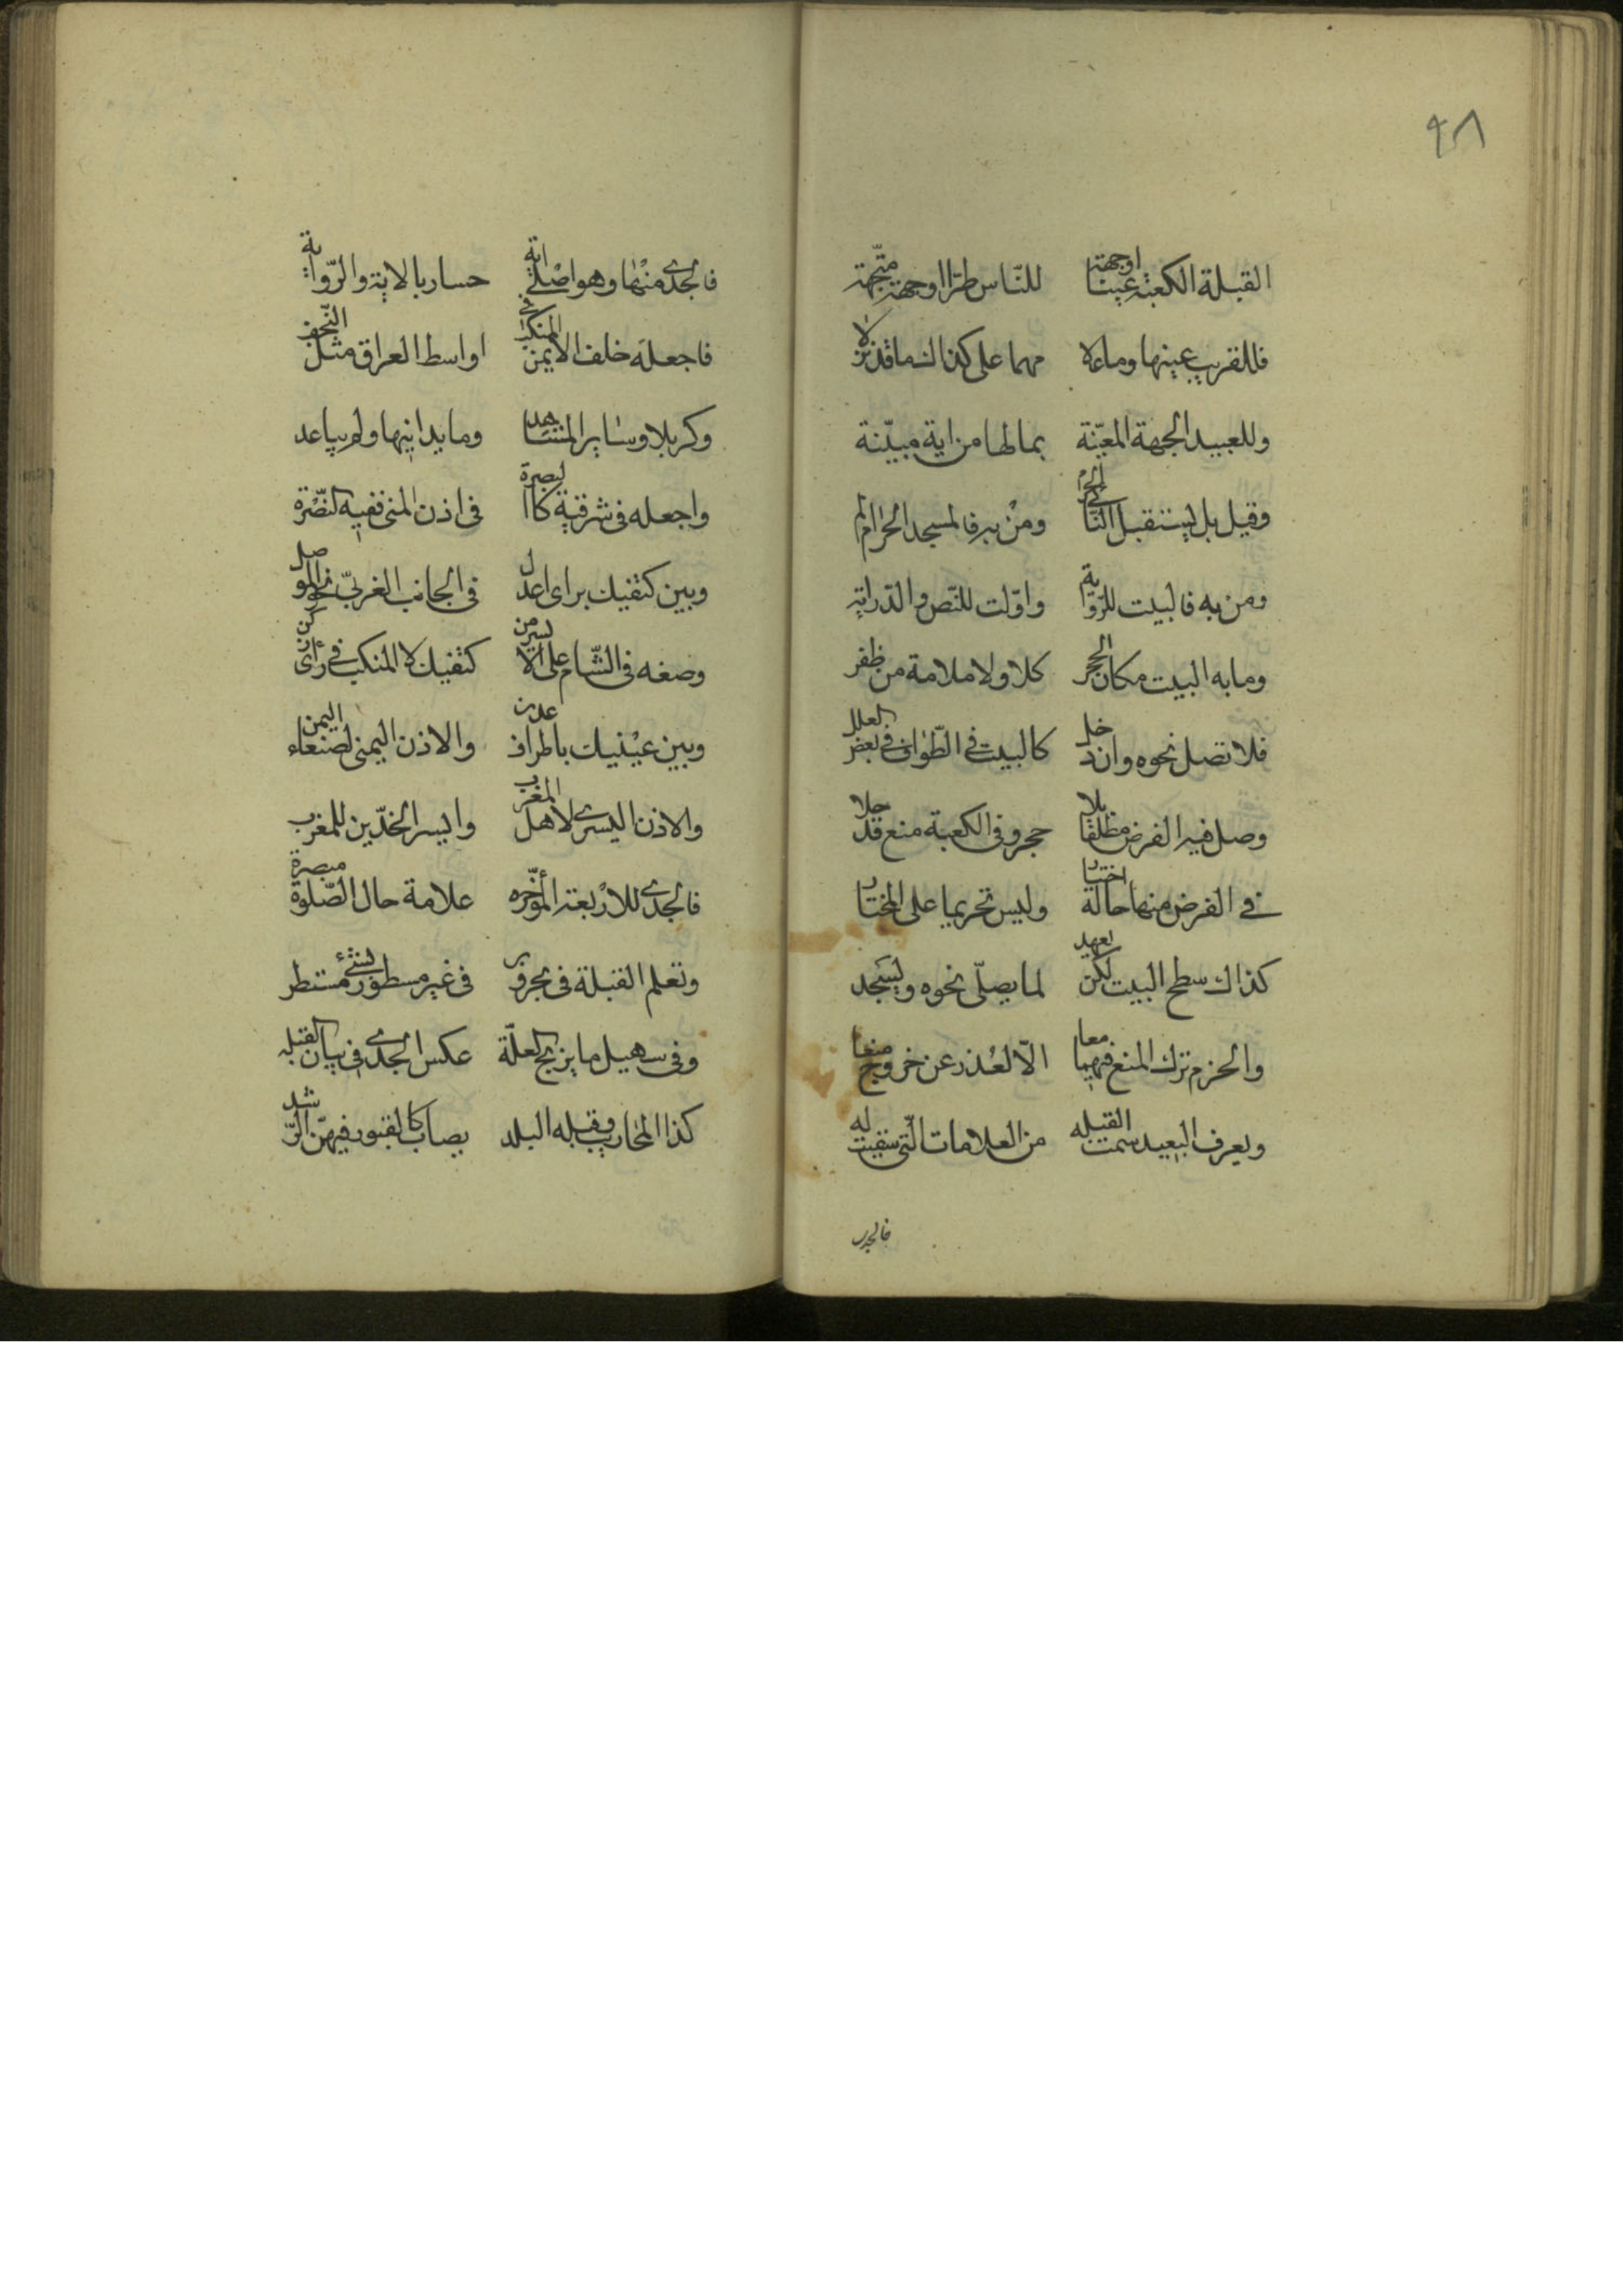 ٩٨
القبلة الكعبة عينا اوجهة للنّاس طرّا اوجهة متّجهة
فللقريب عينها وما علا مهما على كذاك ما قد نزلا
وللعبيد الجهة المعيّنة بما لها من اية مبيّنة
وقيل بل يستقبل النّائي الحرم ومن به فالمسجد الحرام ام
ومن به فالبيت للرّواية واوّلت للنّص والدّراية
وما به البيت مكان الحجر كلا ولا ملامة من ظفر
فلا تصل نحوه وان دخل كالبيت في الطّواف في بعض العلل
وصل فيه الفرض مطلقا بلا حجر وفي الكعبة منع قد جلا
في الفرض منها حالة اختيار وليس تحريما على المختار
كذاك سطح البيت لكن يعهد لما يصلّى نحوه ويسجد
والحزم ترك المنع فيهما معا الّا لعذر عن خروج منعا
ويعرف البعيد سمت القبله من العلامات الّتي سقيت له
فالجدي
فالجدي منها وهو اصل اية حسار بالاية والرّواية
فاجعله خلف الايمن المنكب في اواسط العراق مثل النّجف
وكربلا وساير المشاهد وما يدانيها ولم يباعد
واجعله في شرقية كالبصرة في اذن اليمنى ففيه النّضرة
وبين كتفيك براى اعدل في الجانب الغربيّ نحو الموصل
وضعه في الشّام على الايسر من كتفيك لا المنكب في رأى زكن
وبين عينيك باطراف عدن والاذن اليمنى لصنعاء اليمن
والاذن اليسرى لاهل المغرب وايسر الخدّين للمغرب
فالجدي للاربعة المؤخّره علامة حال الصّلوة مبصرة
وتعلم القبلة في بحر وبر في غير مسطور بشئ مستطر
وفي سهيل ما يزيح العلّة عكس الجدي في بيان القبله
كذا المحاريب وقبله البلد يصاب كالقبور فيهنّ الرّشد